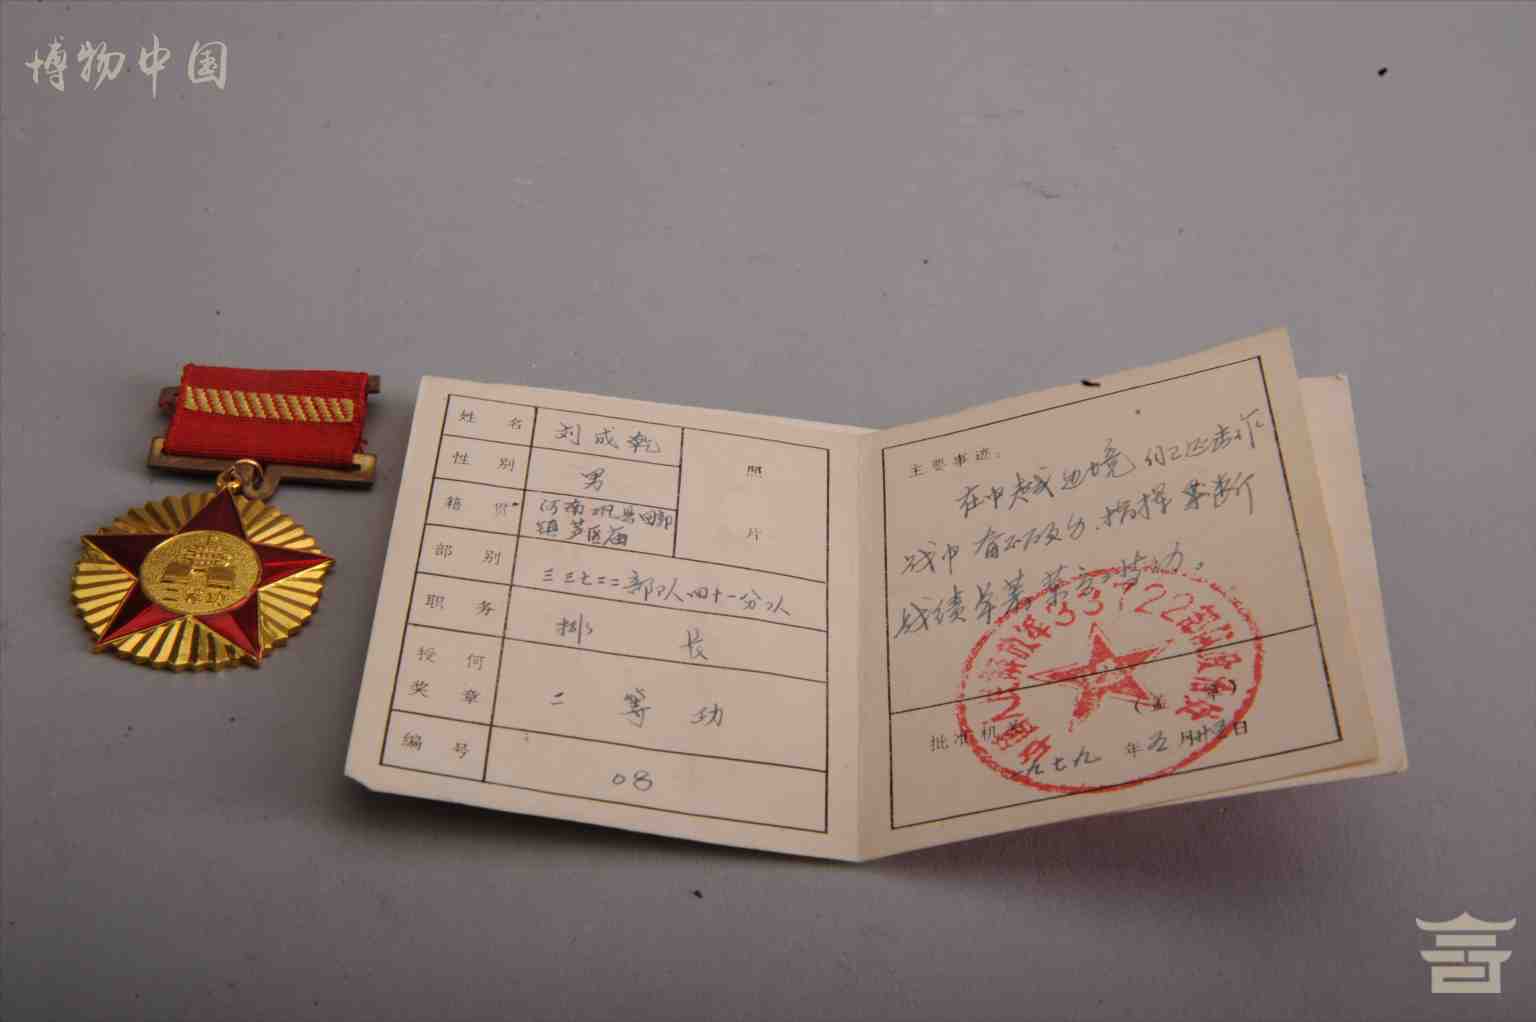 博物中国
姓名 刘成乾
照片
性别 男
籍贯 河南巩县回郭
镇芦医庙
部别 三三七二二部队四十一分队
职务 排长
授何
奖章 二等功
编号 08
二等功
主要事迹：
在中越边境自卫还击作
战中 奋不顾身、指挥果断
战绩卓著 荣立二等功。
中国人民解放军33722部队政治处
批准机关 （盖章）
一九七九年五月廿五日